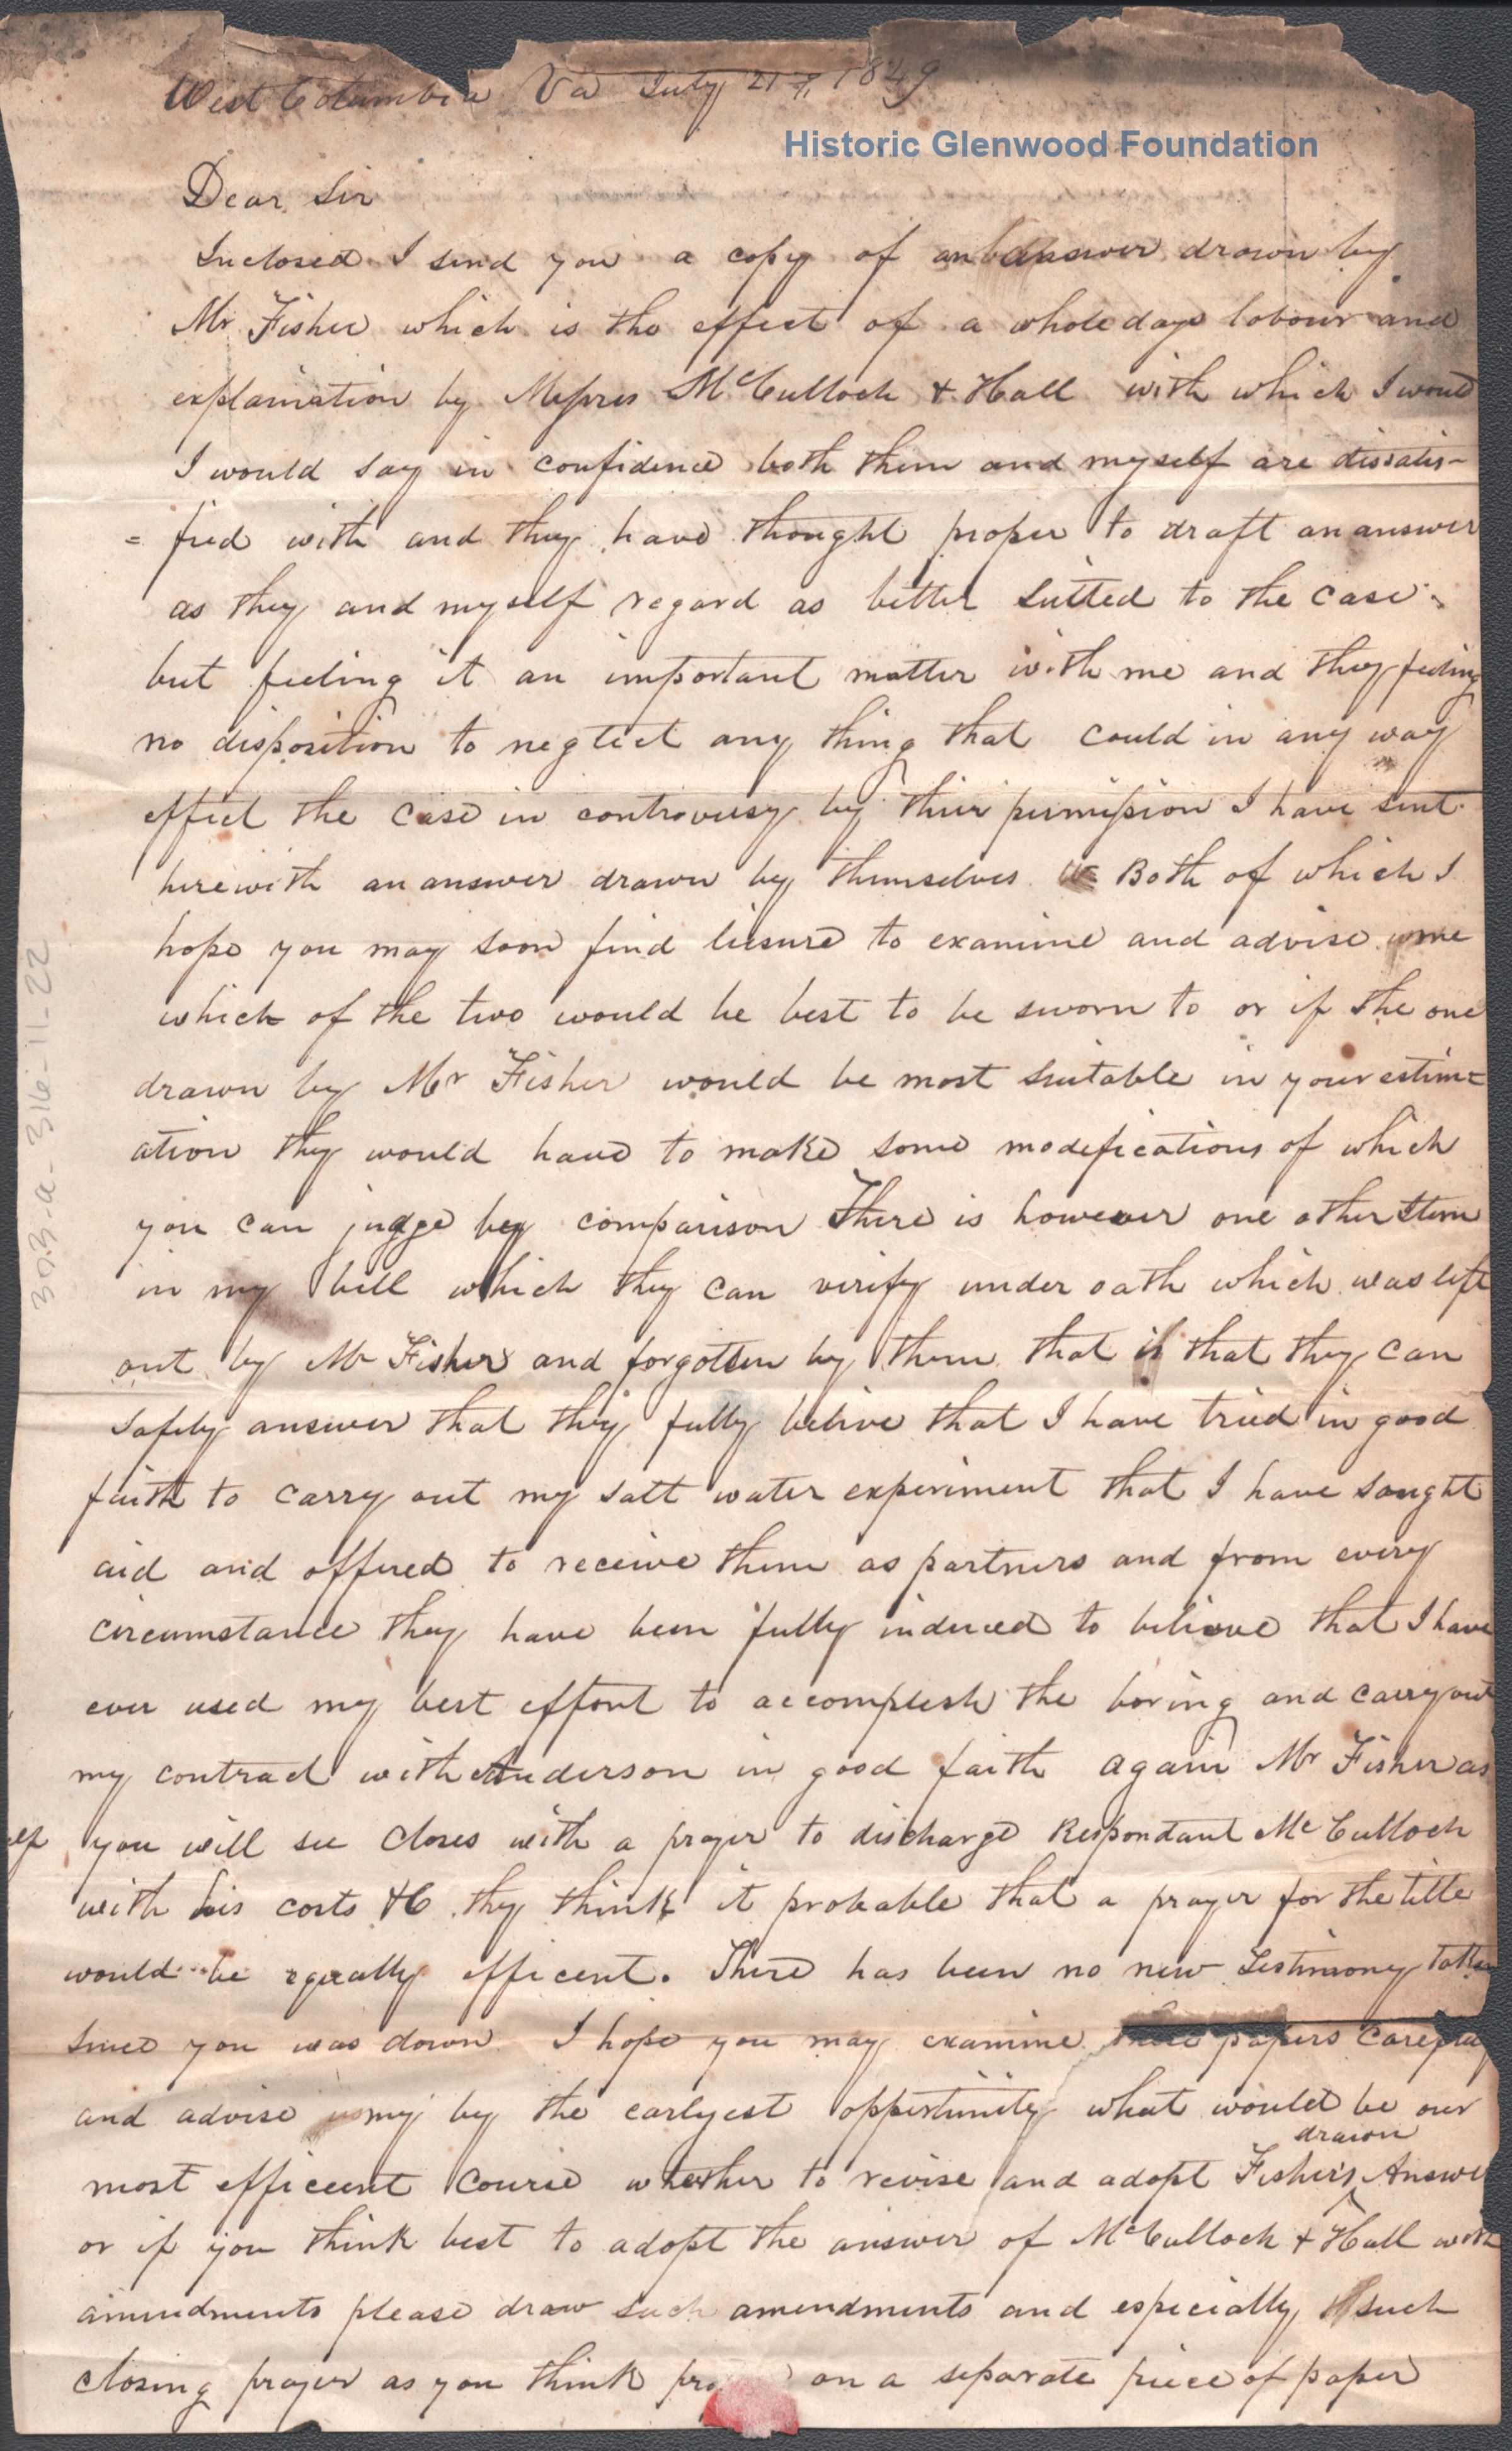 West Columbia Va July 21st, 1849
Historic Glenwood Foundation
Dear Sir
Inclosed I send you a copy of an answer drawn by
Mr Fisher which is the effect of a whole days labour and
explaination by Messrs McCulloch & Hall with which I would
I would say in confidence both them and myself are dissatis-
= fied with and they have thought proper to draft an answer
as they and myself regard as better suited to the case.
but feeling it an important matter with me and they feeling
no disposition to neglect any thing that could in any way
effect the case in controversy by their permission I have sent
herewith an answer drawn by themselves Both of which I
hope you may soon find liesure to examine and advise me
which of the two would be best to be sworn to or if the one
drawn by Mr Fisher would be most suitable in your estim=
ation they would have to make some modefications of which
you can judge by comparison There is however one other Item
in my bill which they can verify under oath which was left
out by Mr Fisher and forgotten by them that is that they can
safely answer that they fully belive that I have tried in good
faith to carry out my salt water experiment that I have sought
aid and offered to receive them as partners and from every
circumstance they have been fully induced to believe that I have
ever used my best effort to accomplish the boring and carry out
my contract with Anderson in good faith again Mr Fisher as
elf you will see closes with a prayer to discharge Respondant McCulloch
with his costs &C they think it probable that a prayer for the title
would be equally efficent. There has been no new Testimony taken
since you was down I hope you may examine these papers carefully
and advise my by the earlyest oppertunity what would be our
most efficeent Course whether to revise and adopt Fisher's drawn Answer
or if you think best to adopt the answer of McCulloch & Hall with
amendments please draw such amendments and especially such
closing prayer as you think on a separate piece of paper
303-a-316-11-22